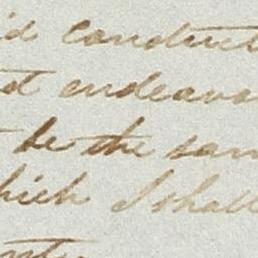 conduct
endeavo
be the sam
hich I shall